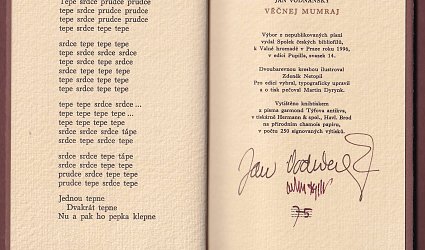 Tepe srdce prudce prudce
tepe srdce prudce prudce
tepe srdce prudce prudce
tepe prudce tepe tepe
srdce tepe tepe tepe
tepe srdce tepe tepe
tepe tepe srdce tepe
tepe tepe tepe srdce
tepe tepe tepe tepe
tepe tepe srdce srdce ...
tepe tepe tepe tepe
srdce tepe tepe tepe
srdce srdce srdce tápe
srdce tepe srdce srdce
srdce tepe srdce tápe
srdce tepe srdce srdce
prudce srdce srdce tepe
prudce tepe srdce tepe
Jednou tepne
Dvakrát tepne
Nu a pak ho pepka klepne
JAN VODŇANSKÝ
VĚČNEJ MUMRAJ
Výbor z nepublikovaných písní
vydal Spolek českých bibliofilů,
k Valné hromadě v Praze roku 1996,
v edici Pupilla, svazek 14.
Dvoubarevnou kresbou ilustroval
Zdeněk Netopil
Pro edici vybral, typograficky upravil
a o tisk pečoval Martin Dyrynk.
Vytištěno knihtiskem
z písma garmond Týfova antikva,
v tiskárně Hermann & spol., Havl. Brod
na přírodním chamois papíru,
v počtu 250 signovaných výtisků.
Jan